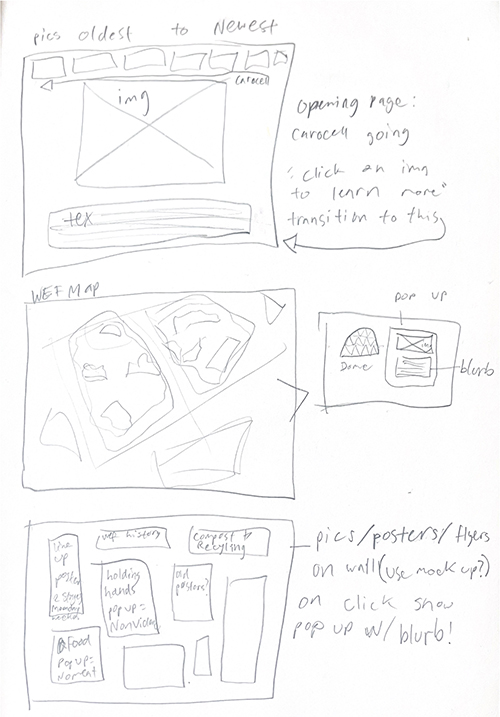 pics oldest to Newest
Carocell
img
tex
Opening Page:
Carocell going
"Click an img
to learn more"
transition to this
WEF Map
pop up
img
Dome
blurb
line
up
poster
2 stages
wef history
Compost &
Recycling
holding
hands
pop up =
Nonviolen
old
posters?
Food
pop up =
No meat
pics/posters/flyers
on wall (use mock up?)
on click show
pop up w/ blurb!